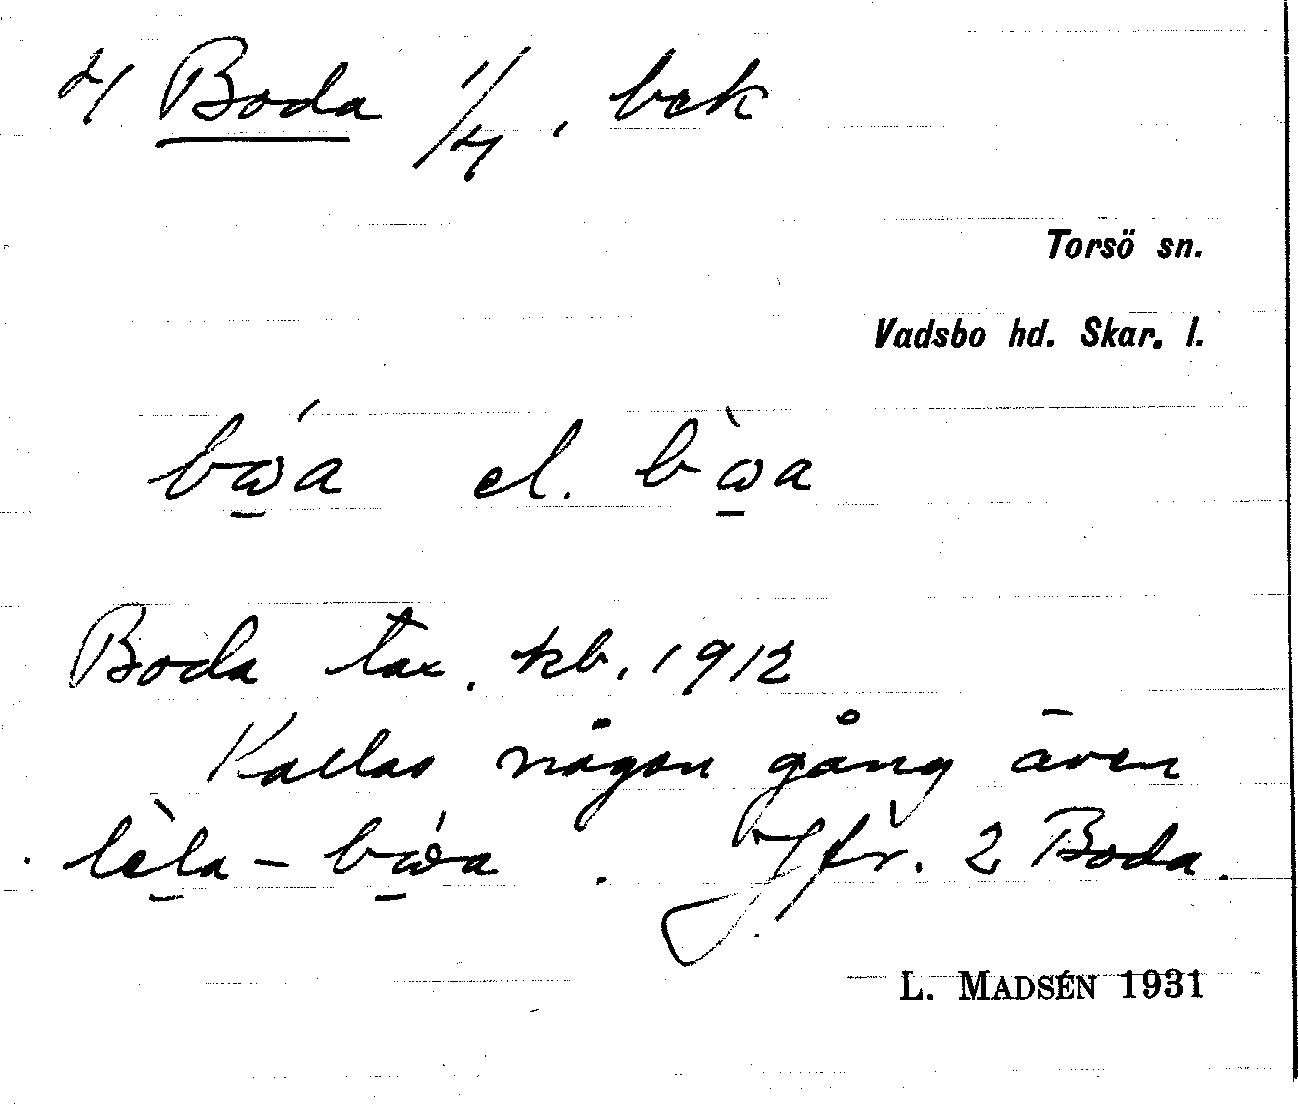 4 Boda 1/4, bck
Torsö sn.
Vadsbo hd. Skar. l.
bώ̱a el. bὼ̱a
Boda tax. kb. 1912
Kallas någon gång även
lè̱la-bώ̱a. Jfr. 2 Boda.
L. MADSÉN 1931